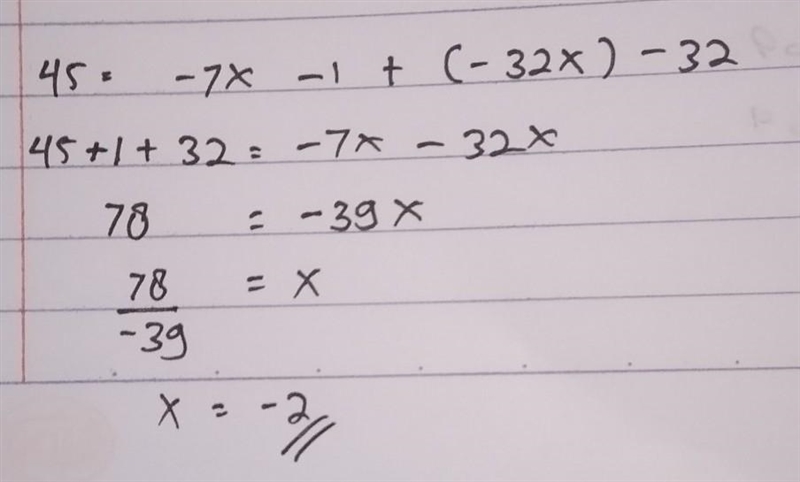 45 = -7x -1 + (-32x) - 32
45 + 1 + 32 = -7x - 32x
78 = -39x
78/-39 = x
x = -2